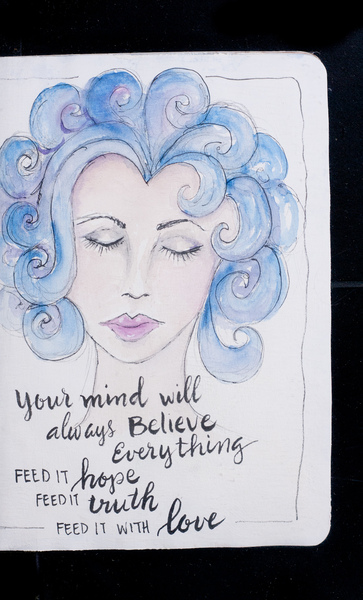 Your mind will
always Believe
Everything
FEED IT hope
FEED IT truth
FEED IT WITH love